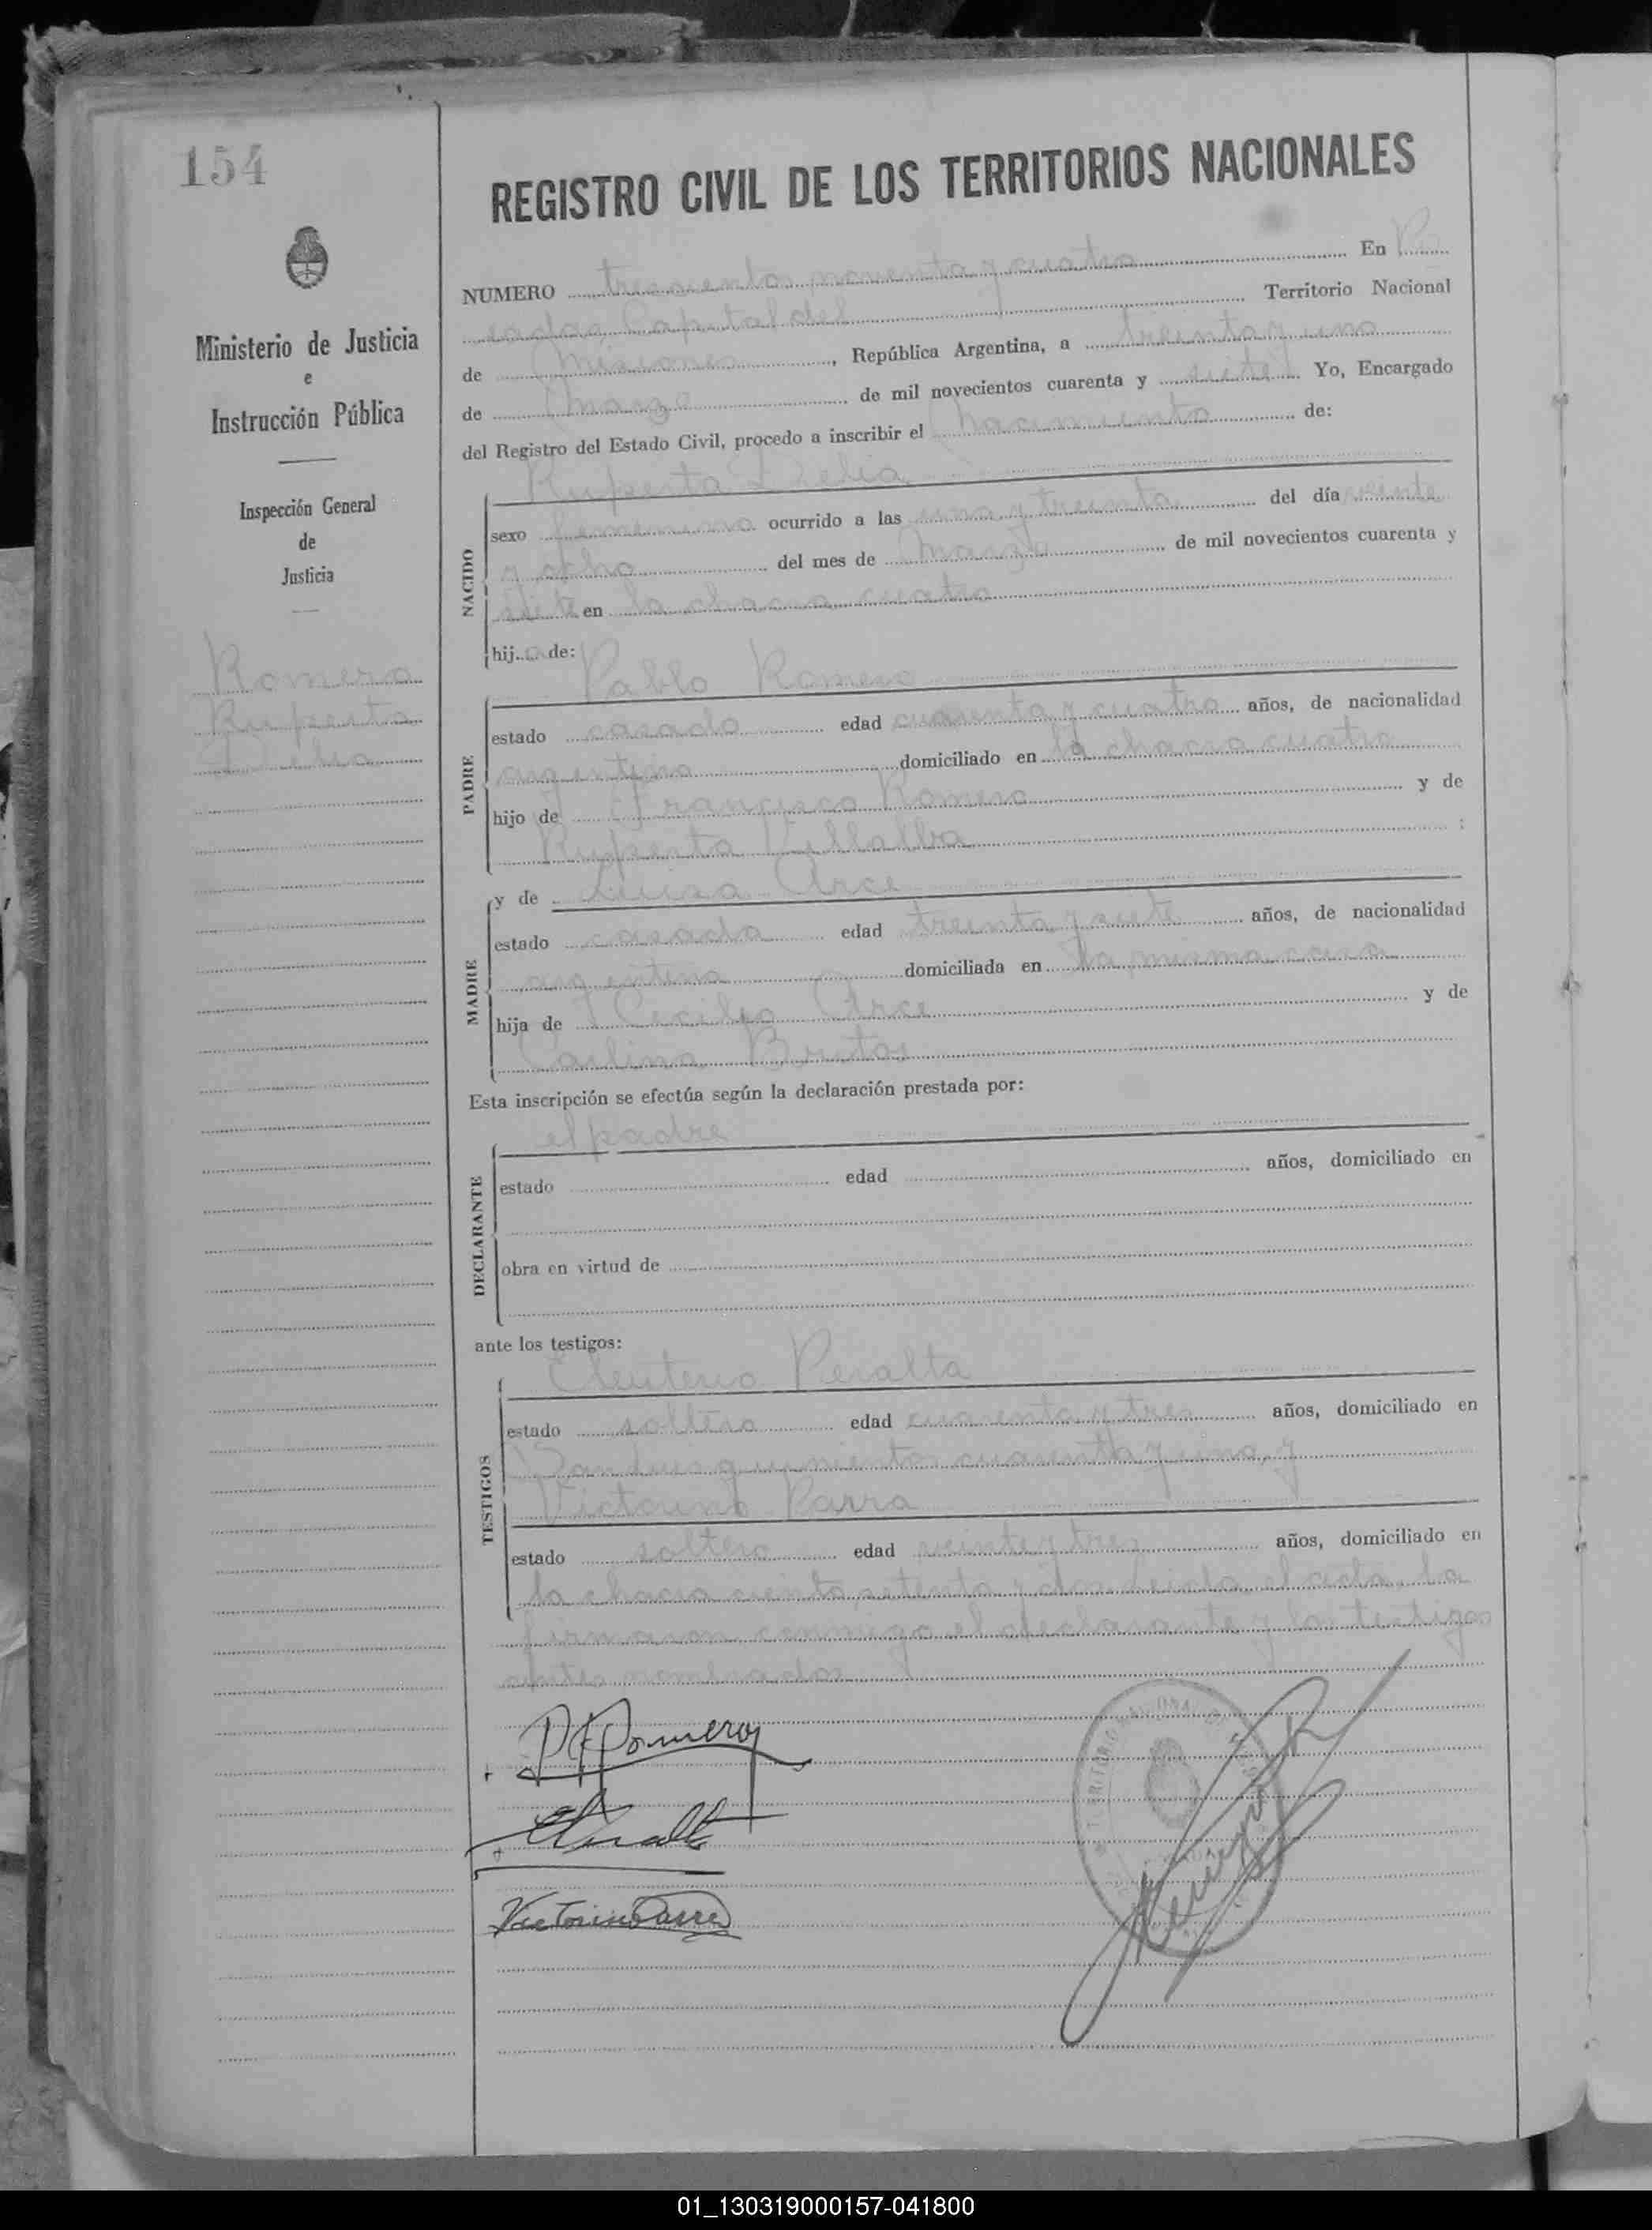 154
REGISTRO CIVIL DE LOS TERRITORIOS NACIONALES
Ministerio de Justicia
e
Instrucción Pública
Inspección General
de
Justicia
Romero
Ruperta
Delia
NUMERO trescientos noventa y cuatro En Po
sadas, Capital del Territorio Nacional
de Misiones, República Argentina, a treinta y uno
de Marzo de mil novecientos cuarenta y siete Yo, Encargado
del Registro del Estado Civil, procedo a inscribir el nacimiento de:
NACIDO
Ruperta Delia
sexo femenino ocurrido a las una y treinta del día veinte
y ocho del mes de Marzo de mil novecientos cuarenta y
siete en la chacra cuatro
hija de:
PADRE
Pablo Romero
estado casado edad cuarenta y cuatro años, de nacionalidad
argentina domiciliado en la chacra cuatro
hijo de Francisco Romero y de
Ruperta Villalba ;
MADRE
y de Luisa Arce
estado casada edad treinta y siete años, de nacionalidad
argentina domiciliada en la misma casa
hija de Cecilio Arce y de
Paulina Britos
Esta inscripción se efectúa según la declaración prestada por:
DECLARANTE
el padre
estado edad años, domiciliado en
obra en virtud de
ante los testigos:
TESTIGOS
Eleuterio Peralta
estado soltero edad cuarenta y tres años, domiciliado en
San Luis quinientos cuarenta y uno, y
Victorino Parra
estado soltero edad veinte y tres años, domiciliado en
la chacra ciento setenta y dos. Leida el acta, la
firmaron conmigo el declarante y los testigos
antes nombrados
P Romero
Victorino Parra
01_130319000157-041800